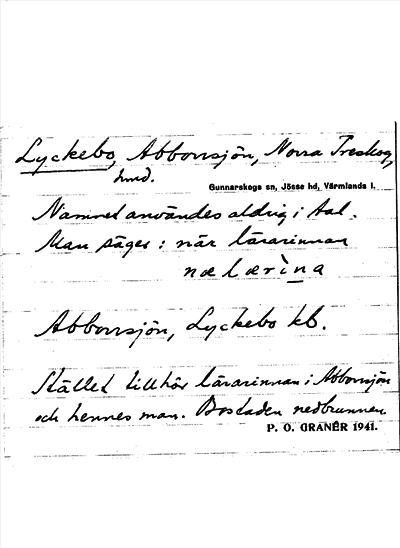 Lyckebo, Abborrsjön, Norra Treskog,
hmd.
Gunnarskogs sn, Jösse hd, Värmlands l.
Namnet användes aldrig i tal.
Man säger: när lärarinnan
næ lærìna
Abborrsjön, Lyckebo kb.
Stället tillhör lärarinnan i Abborrsjön
och hennes man. Bostaden nedbrunnen.
P. O. GRANÉR 1941.